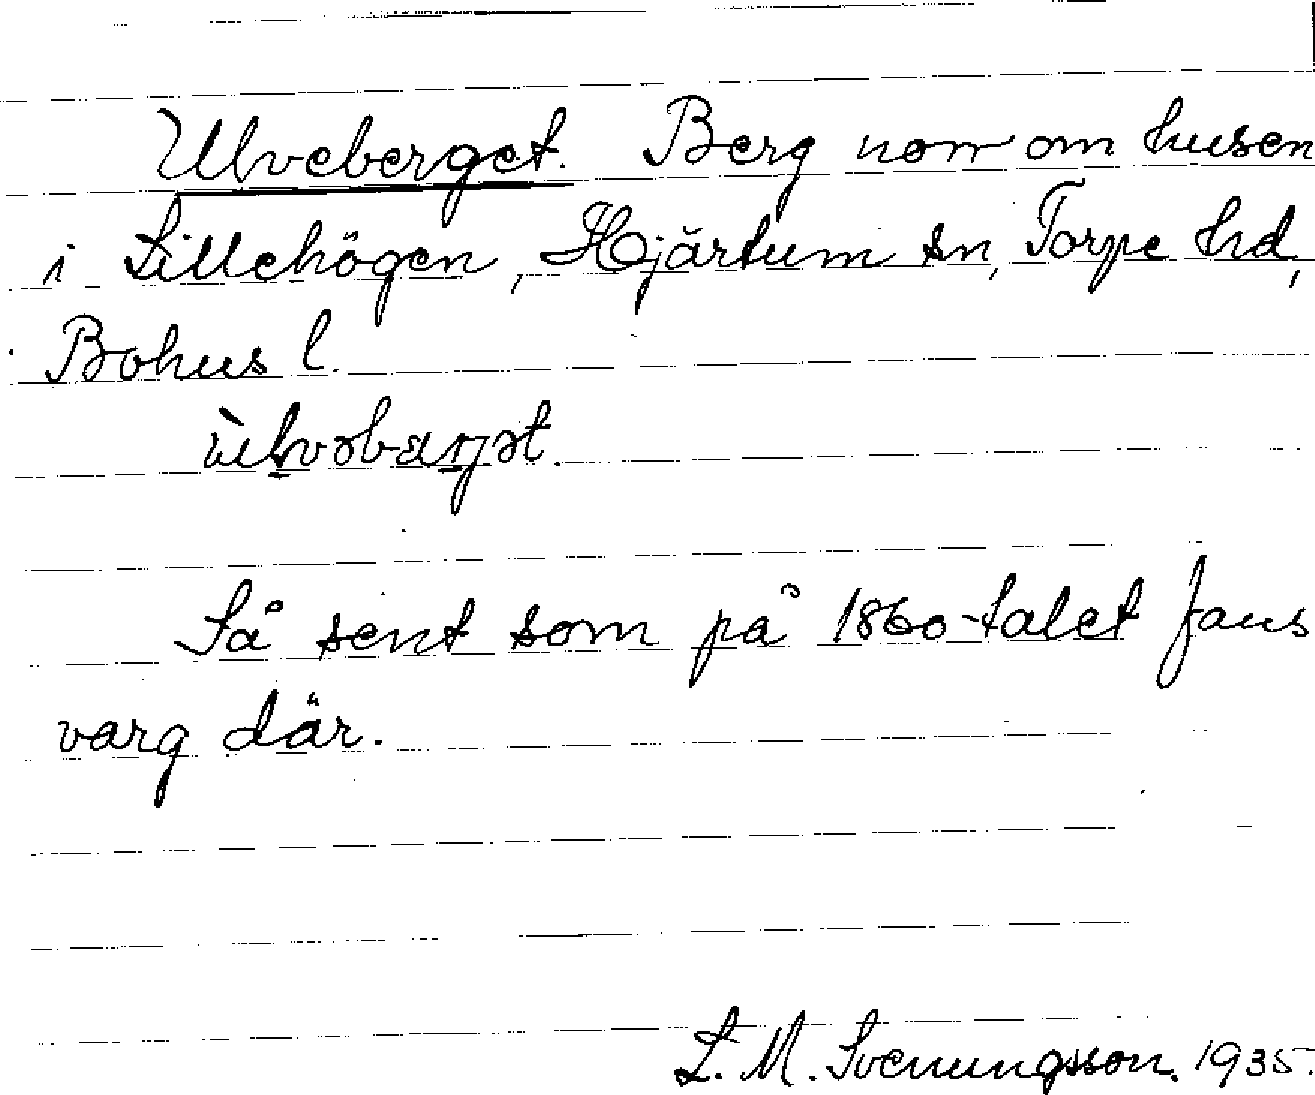 Ulveberget. Berg norr om husen
i Lillehögen, Hjärtum sn, Torpe hd,
Bohus l.
Så sent som på 1860-talet fans
varg där.
L. M. Svenungsson. 1935.